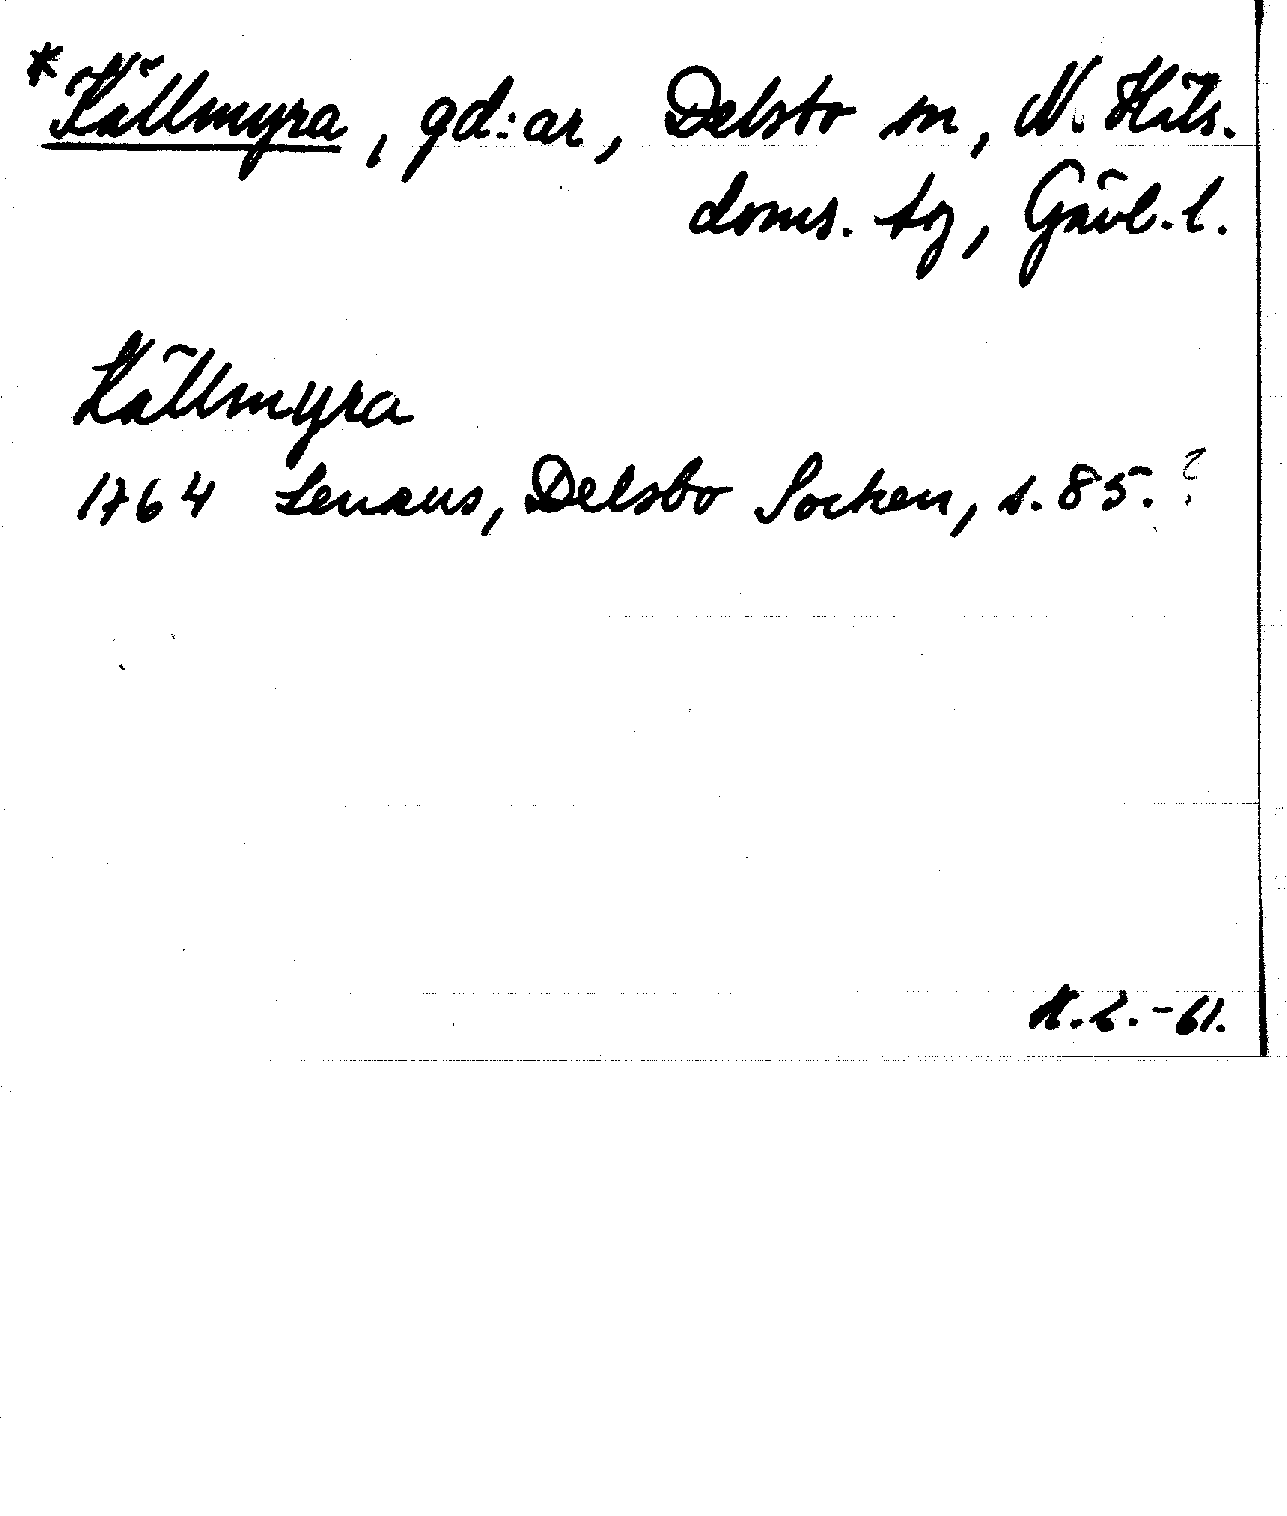 *Källmyra, gd:ar, Delsbo sn, N. Häls.
doms. tg, Gävl. l.
Källmyra
1764 Lenæus, Delsbo Socken, s. 85. ?
K.L.-61.